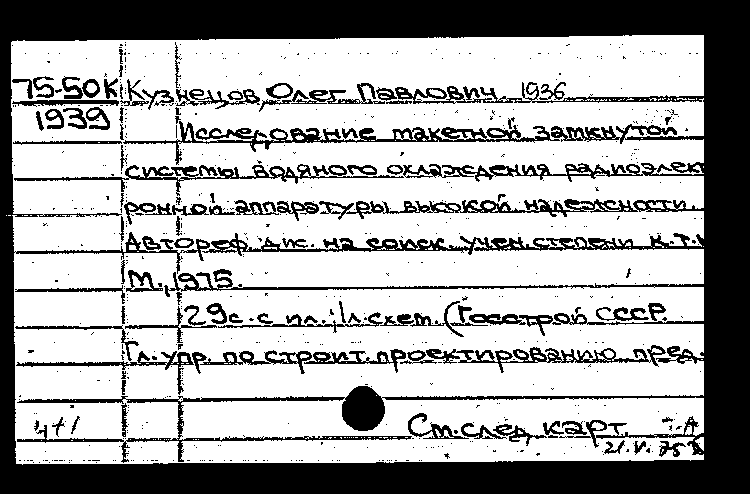 75-50К Кузнецов, Олег Павлович. 1936
1939
Исследование макетной замкнутой
системы водяного охлаждения радиоэлект
ронной аппаратуры высокой надежности.
Автореф. дис. на соиск. учен. степени к.т.н
М., 1975.
29с. с ил.; 1л.схем. (Госстрой СССР.
Гл. упр. по строит. проектированию пред.
4+1
См. след. карт. Т.А
21.V.75